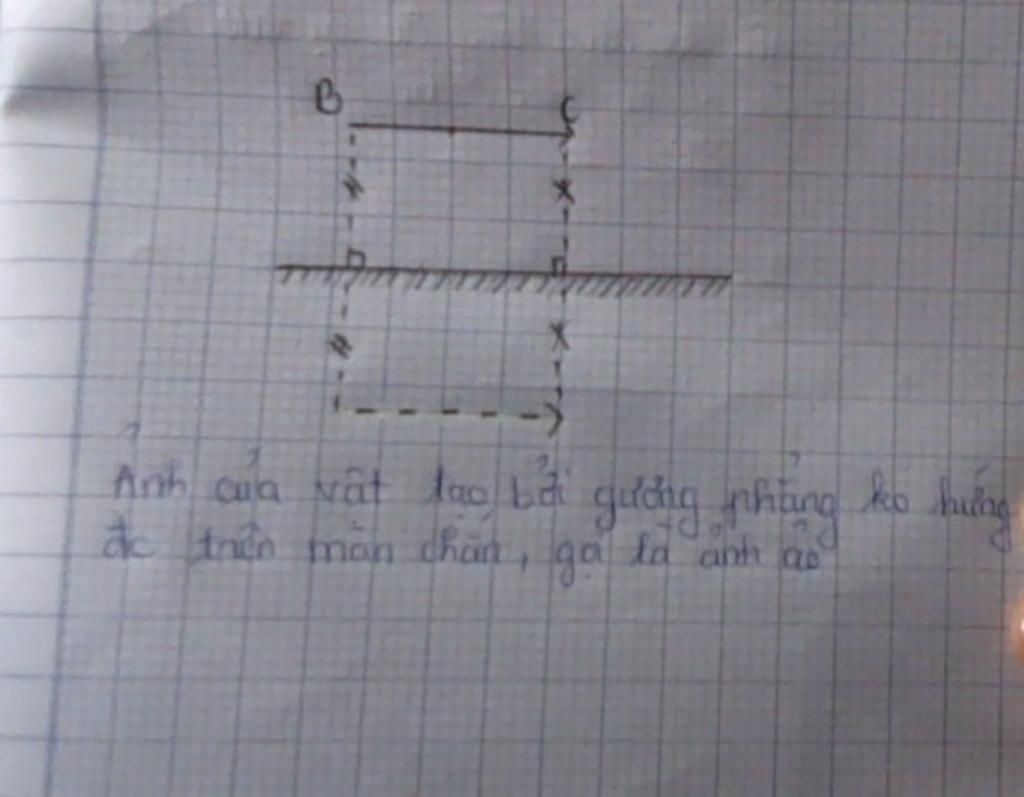 B
C
Ảnh của vật tạo bởi gương phẳng ko hứng
đc trên màn chắn, gọi là ảnh ảo